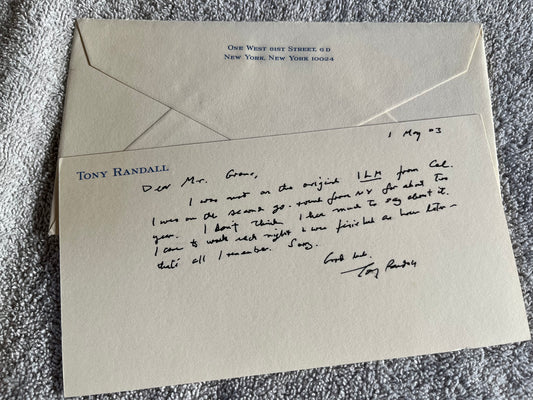 One West 81st Street, 6D
New York, New York 10024
1 May 03
Tony Randall
Dear Mr. Grams,
I was not on the original ILAM from Cal.
I was on the second go-round from NY for about two
years. I don't think I have much to say about it.
I came to work each night & was finished an hour later –
that's all I remember. Sorry.
Good luck.
Tony Randall